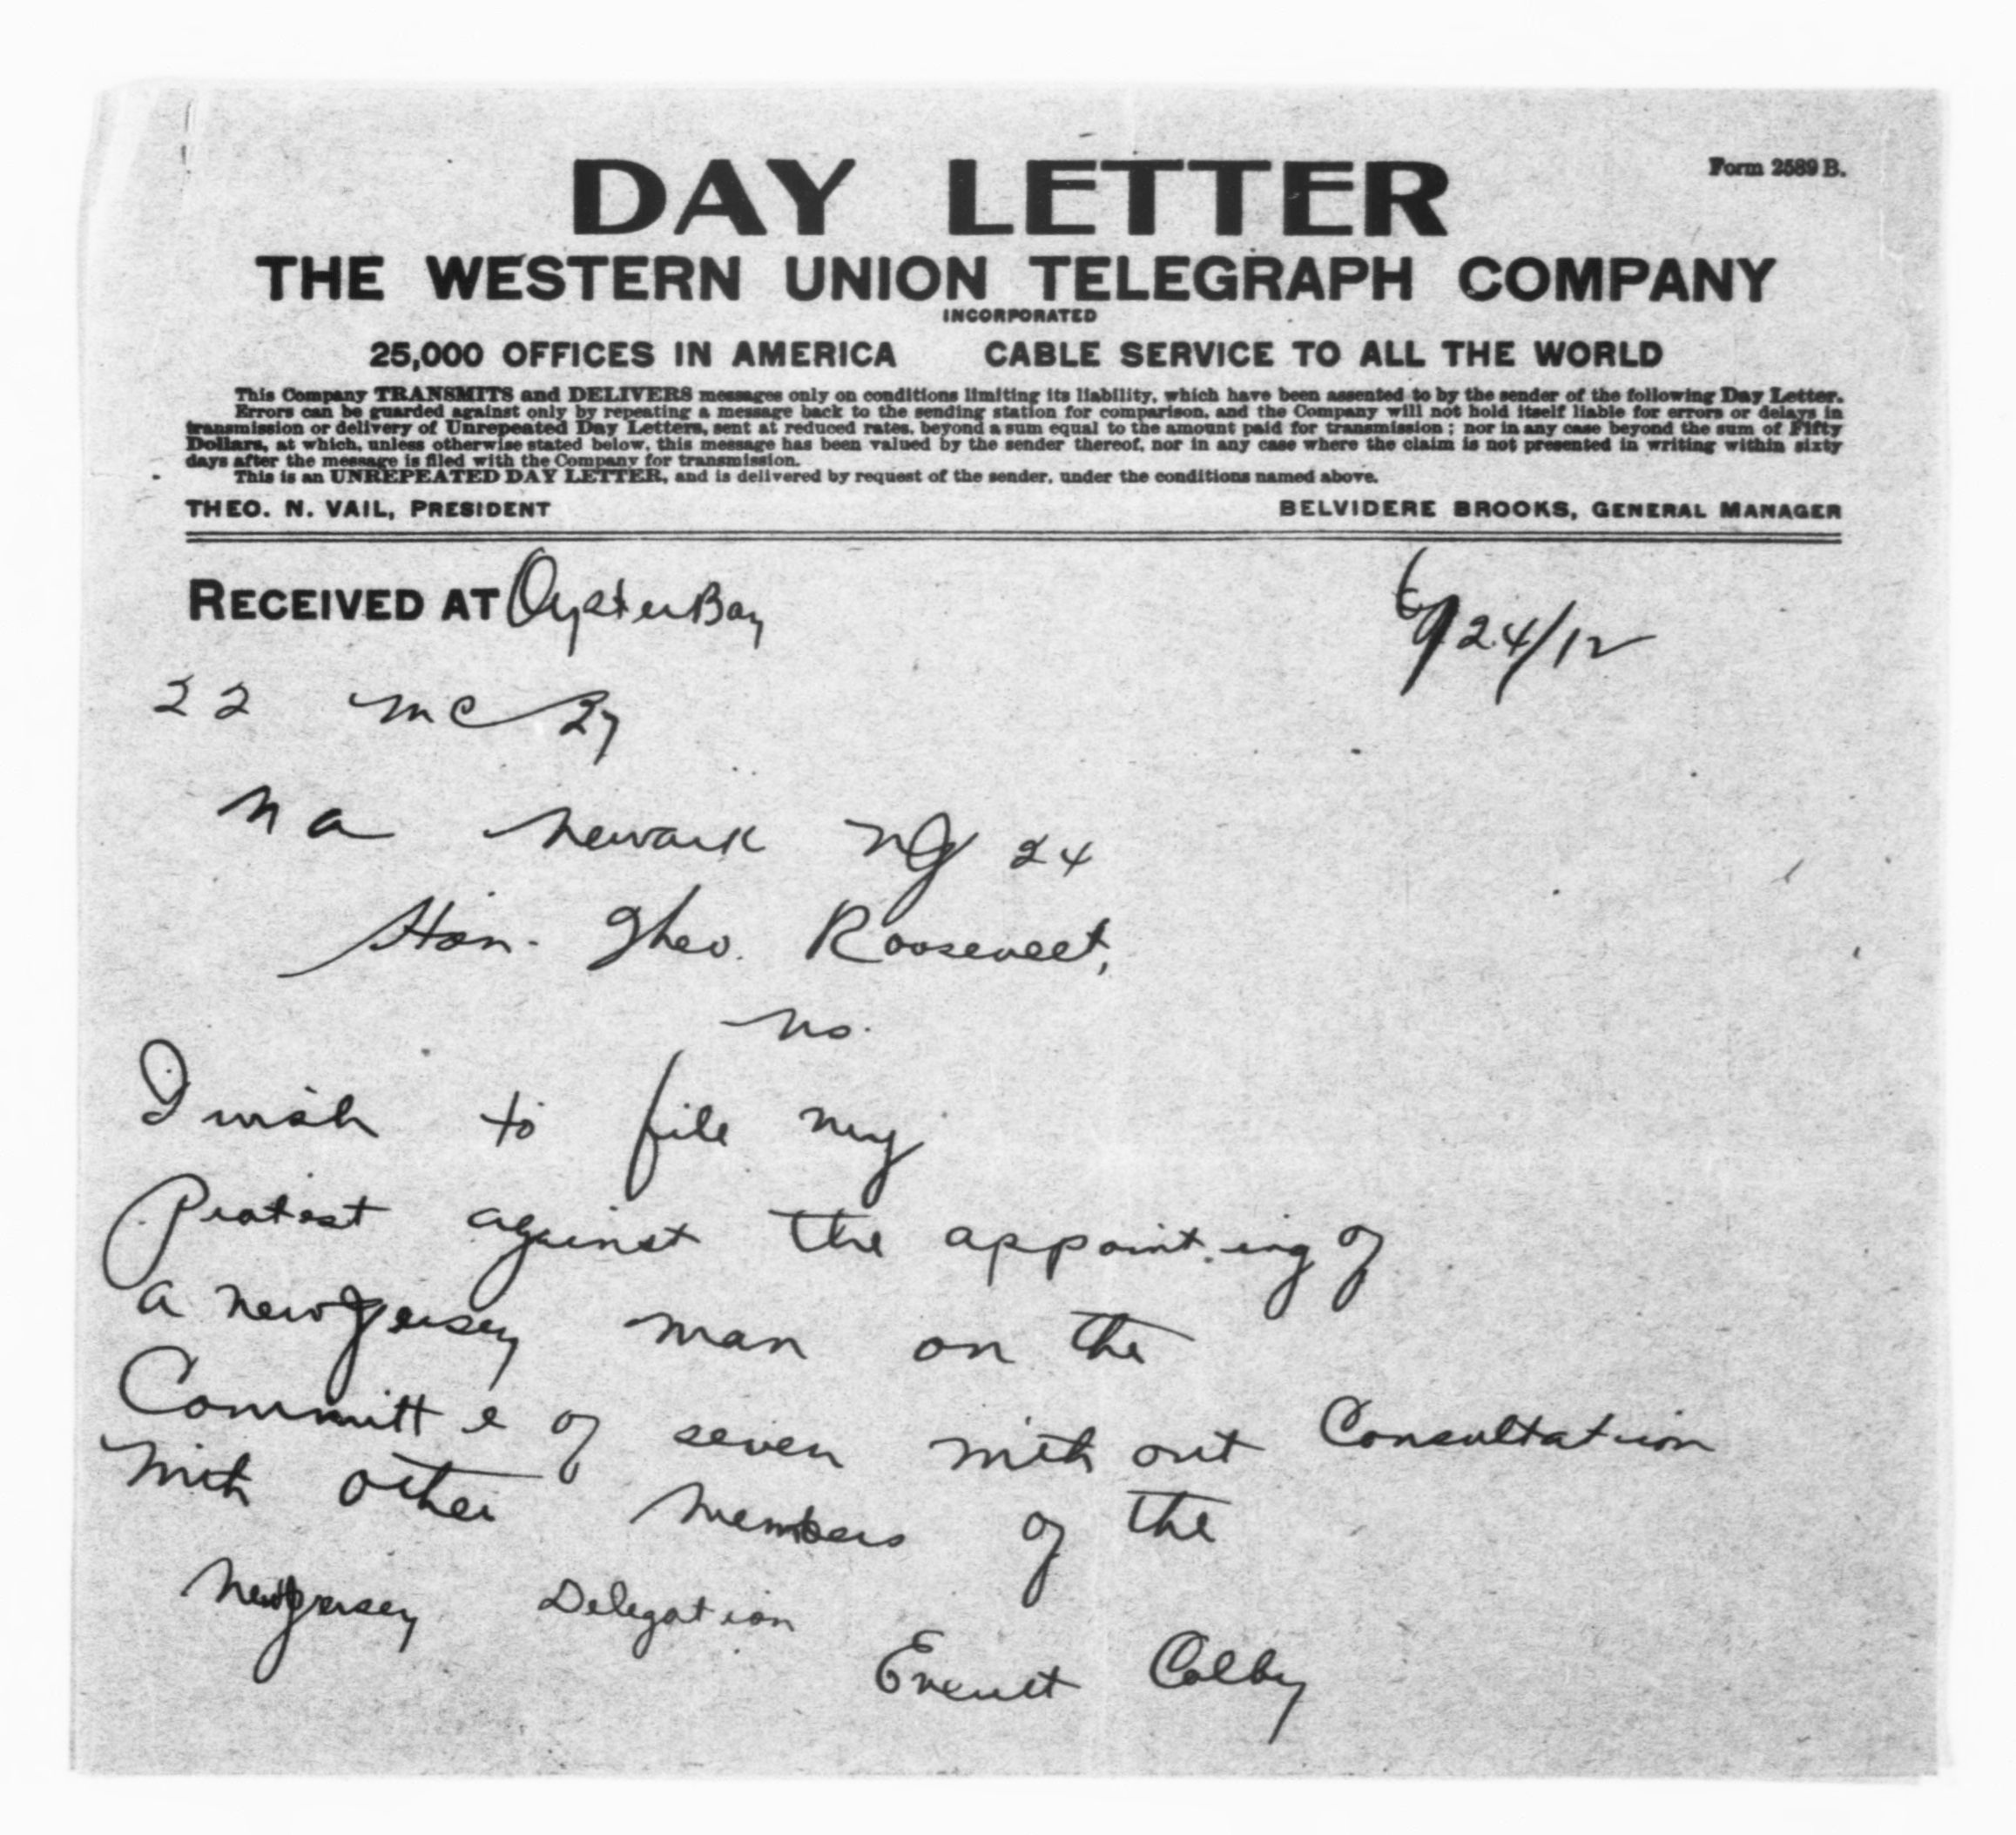 DAY LETTER
Form 2589 B.
THE WESTERN UNION TELEGRAPH COMPANY
INCORPORATED
25,000 OFFICES IN AMERICA CABLE SERVICE TO ALL THE WORLD
This Company TRANSMITS and DELIVERS messages only on conditions limiting its liability, which have been assented to by the sender of the following Day Letter.
Errors can be guarded against only by repeating a message back to the sending station for comparison, and the Company will not hold itself liable for errors or delays in
transmission or delivery of Unrepeated Day Letters, sent at reduced rates, beyond a sum equal to the amount paid for transmission; nor in any case beyond the sum of Fifty
Dollars, at which, unless otherwise stated below, this message has been valued by the sender thereof, nor in any case where the claim is not presented in writing within sixty
days after the message is filed with the Company for transmission.
This is an UNREPEATED DAY LETTER, and is delivered by request of the sender, under the conditions named above.
THEO. N. VAIL, PRESIDENT BELVIDERE BROOKS, GENERAL MANAGER
RECEIVED AT Oyster Bay 6/24/12
22 mc 27
na Newark NJ 24
Hon. Theo. Roosevelt,
I wish to file my
Protest against the appointing of
a new Jersey man on the
Committe of seven with out Consultation
with other members of the
New Jersey Delegation
Everett Colby